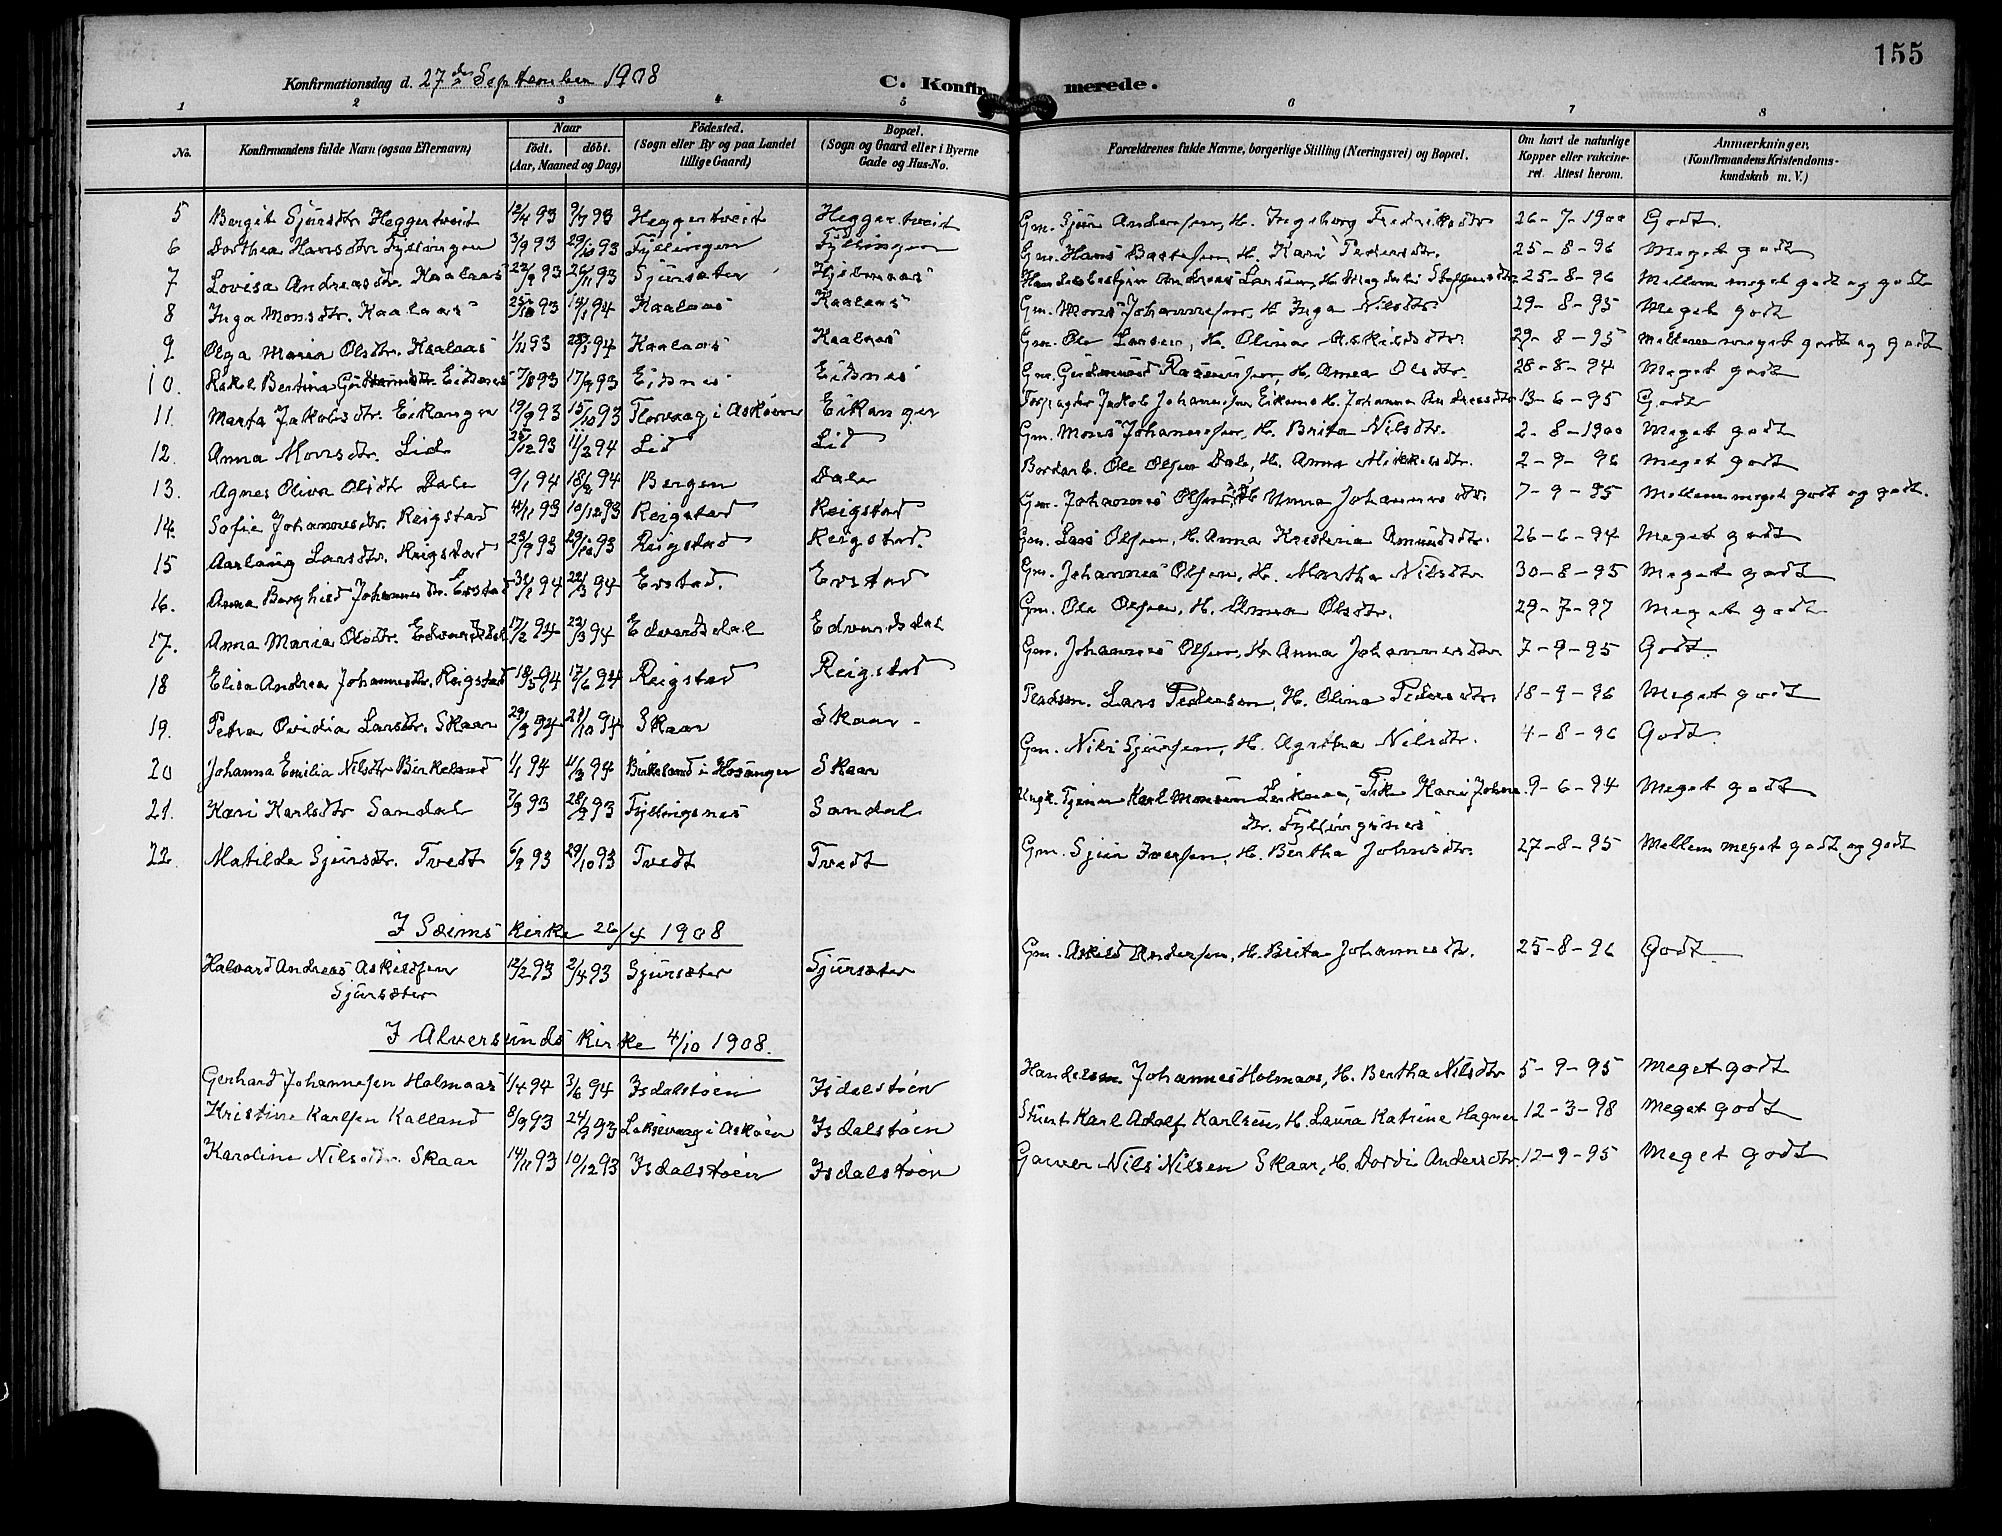 155
Konfirmationsdag d. 27de September 1908 C. Konfirmerede.
1 2 3 4 5 6 7 8
No. Konfirmandens fulde Navn (ogsaa Efternavn) Naar født. døbt. (Aar, Maaned og Dag) Fødested. (Sogn eller By og paa Landet tillige Gaard) Bopæl. (Sogn og Gaard eller i Byerne Gade og Hus-No. Forældrenes fulde Navne, borgerlige Stilling (Næringsvei) og Bopæl. Om havt de naturlige Kopper eller vakcineret. Attest herom. Anmærkninger. (Konfirmandens Kristendomskundskab m. V.)
5 Bergit Sjursdtr. Heggertveit 12/4 93 9/7 93 Heggertveit Heggertveit Gm. Sjur Andersen, H. Ingeborg Fredriksdtr. 26-7-1900 Godt.
6 Dorthea Hansdtr. Fyllingen 3/9 93 29/10 93 Fyllingen Fyllingen Gm. Hans Bastesen, H. Kari Pedersdtr. 25-8-96 Meget godt
7 Lovisa Andreasdtr. Kaalaas 22/9 93 26/11 93 Sjursæter Hjelmaas Andreas Larsen, H. 25-8-96 Mellem meget godt og godt
8 Inga Monsdtr. Kaalaas 25/10 93 14/1 94 Kaalaas Kaalaas Gm. Mons Johannesen, H. Inga Nilsdtr. 29-8-95 Meget godt
9 Olga Maria Olsdtr. Kaalaas 1/11 93 94 Kaalaas Kaalaas Gm. Ole Larsen, H. Olina Askildsdtr. 29-8-95 Mellem meget godt og godt
10. Rakel Bertina Gudmundsdtr. Eidsnes 7/8 93 17/9 93 Eidsnes Eidsnes Gm. Gudmund Rasmussen, H. Anna Olsdtr. 28-8-94 Meget godt
11. Marta Jakobsdtr. Eikanger 19/9 93 15/10 93 Florvaag i Askøen Eikanger Jakob Johannesen H. Johanna Andreasdtr. 13-6-95 Godt
12. Anna Monsdtr. Lid 25/12 93 11/2 94 Lid Lid Gm. Mons Johannesen, H. Brita Nilsdtr. 2-8-1900 Meget godt
13. Agnes Oliva Olsdtr Dale 9/1 94 18/2 94 Bergen Dale Bordarb. Ole Olsen Dale, H. Anna Mikkelsdtr. 2-9-96 Meget godt
14. Sofie Johannesdtr. Reigstad 4/11 93 10/12 93 Reigstad Reigstad Gm. Johannes Olsen, H. Anna Johannesdtr. 7-9-95 Mellem meget godt og godt.
15 Aarlaug Larsdtr. Reigstad 23/9 93 29/10 93 Reigstad Reigstad. Gm. Lars Olsen, H. Anna Kristena Amundsdtr. 26-6-94 Meget godt
16. Anna Borghild Johannesdtr. Erstad 31/1 94 22/3 94 Erstad. Erstad Gm. Johannes Olsen, H. Martha Nilsdtr 30-8-95 Meget godt
17. Anna Maria Olsdtr. Edvardsdal 17/2 94 22/3 94 Edvardsdal Edvardsdal Gm. Ole Olsen, H. Anna Olsdtr. 29-7-97 Meget godt
18 Elisa Andrea Johannesdtr. Reigstad 18/5 94 17/6 94 Reigstad Reigstad Gm. Johannes Olsen, H. Anna Johannesdtr 7-9-95 Godt.
19. Petra Ovidia Larsdtr. Skaar 29/9 94 21/10 94 Skaar Skaar Pladsm. Lars Pedersen, H. Olina Pedersdtr. 18-9-96 Meget godt
20 Johanna Emilia Nilsdtr Birkeland 1/1 94 4/3 94 Birkeland i Hosanger Skaar Gm. Nils Sjursen, H. Agatha Nilsdtr. 4-8-96 Godt
21. Kari Karlsdtr Sandal 7/9 93 93 Fyllingsnes Sandal Ungk. Tjener Karl Monsen Pike Kari Johns- 9-6-94 Meget godt
dtr. Fyllingsnes
22. Matilde Sjursdtr. Tvedt 6/9 93 29/10 93 Tvedt Tvedt Gm. Sjur Iversen, H. Bertha Johnsdtr. 27-8-95 Mellem meget godt og godt
I Sæims Kirke 26/4 1908
Halvard Andreas Askildsen 12/2 93 2/4 93 Sjursæter Sjursæter Gm. Askild Andersen, H. Brita Johannesdtr. 25-8-96 Godt
Sjursæter
I Alversunds Kirke 4/10 1908.
Gerhard Johannesen Holmaas 1/4 94 3/6 94 Isdalstøen Isdalstøen Handelsm. Johannes Holmaas, H. Bertha Nilsdtr 5-9-95 Meget godt
Kristine Karlsen Kalland 8/9 93 24/9 93 i Askøen Isdalstøen Karl Adolf Karlsen, H. Laura Katrine Hagner 12-3-98 Meget godt
Karoline Nilsdtr. Skaar 14/11 93 10/12 93 Isdalstøen Isdalstøen Garver Nils Nilsen Skaar, H. Dordi Andersdtr. 12-9-95 Meget godt